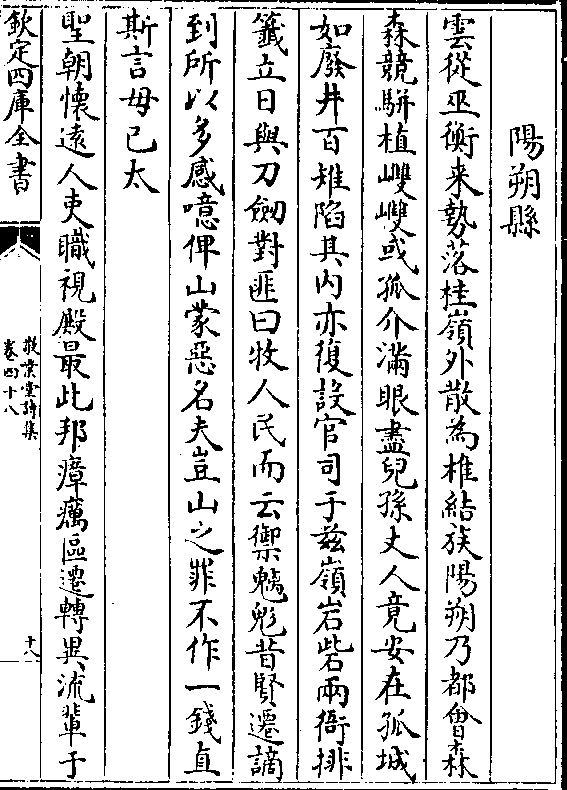 陽朔縣
雲從巫衡来勢落桂嶺外散為椎結族陽朔乃都會森
森競駢植㠠㠠或孤介滿眼盡兒孫丈人竟安在孤城
如廢井百雉陷其内亦復設官司于兹嶺岩砦兩衙排
籤立日與刀劒對匪曰牧人民而云禦魑魅昔賢遷謫
到所以多感噫俾山蒙惡名夫豈山之罪不作一錢直
斯言毋已太
聖朝懷遠人吏職視殿最此邦瘴癘區遷轉異流輩于
欽定四庫全書
敬業堂詩集
卷四十八
十八